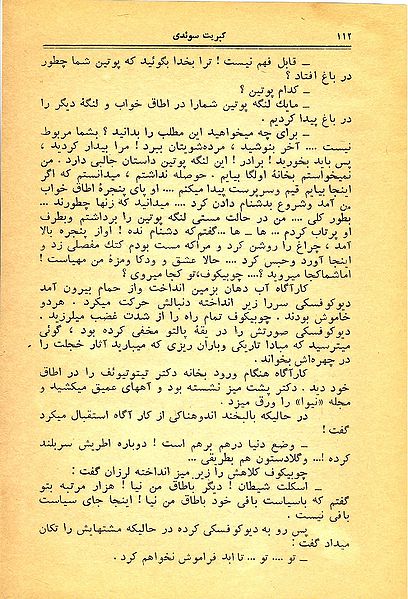 ۱۱۲ کبریت سوئدی
ـ قابل فهم نیست ! ترا بخدا بگوئید که پوتین شما چطور
در باغ افتاد ؟
ـ کدام پوتین ؟
ـ مایك لنگه پوتین شمارا در اطاق خواب و لنگهٔ دیگر را
در باغ پیدا کردیم .
ـ برای چه میخواهید این مطلب را بدانید ؟ بشما مربوط
نیست .... آخر بنوشید ، مرده‌شویتان ببرد ! مرا بیدار کردید ،
پس باید بخورید ! برادر ! این لنگه پوتین داستان جالبی دارد . من
نمیخواستم بخانهٔ اولگا بیایم . حوصله نداشتم ، میدانستم که اگر
اینجا بیایم قیم وسرپرست پیدا میکنم .... او پای پنجرهٔ اطاق خواب
من آمد وشروع بدشنام دادن کرد .... میدانید که زنها چطورند ...
بطور کلی .... من در حالت مستی لنگه پوتین را برداشتم وبطرف
او پرتاب کردم ... ها ـ ها ...گفتم‌که دشنام نده ! اواز پنجره بالا
آمد ، چراغ را روشن کرد و مراکه مست بودم کتك مفصلی زد و
اینجا آورد وحبس کرد .... حالا عشق و ودکا ومزهٔ من مهیاست !
اماشماکجا میروید ؟.... چوبیکوف،تو کجا میروی ؟
کارآگاه آب دهان بزمین انداخت واز حمام بیرون آمد
دیوکوفسکی سررا زیر انداخته دنبالش حرکت میکرد . هردو
خاموش بودند . چوبیکوف تمام راه را از شدت غضب میلرزید .
دیوکوفسکی صورتش را در یقهٔ پالتو مخفی کرده بود ، گوئی
میترسید که مبادا تاریکی وباران ریزی که میبارید آثار خجلت را
در چهره‌اش بخواند .
کارآگاه هنگام ورود بخانه دکتر تیتوتیوئف را در اطاق
خود دید . دکتر پشت میز نشسته بود و آههای عمیق میکشید و
مجله «نیوا» را ورق میزد .
در حالیکه بالبخند اندوهناکی از کار آگاه استقبال میکرد
گفت !
ـ وضع دنیا درهم برهم است ! دوباره اطریش سربلند
کرده !... وگلادستون هم بطریقی ...
چوبیکوف کلاهش را زیر میز انداخته لرزان گفت :
ـ اسکلت شیطان ! دیگر باطاق من نیا ! هزار مرتبه بتو
گفتم که باسیاست بافی خود باطاق من نیا ! اینجا جای سیاست
بافی نیست .
پس رو به دیوکوفسکی کرده در حالیکه مشتهایش را تکان
میداد گفت :
ـ تو .... تو ... تا ابد فراموش نخواهم کرد .